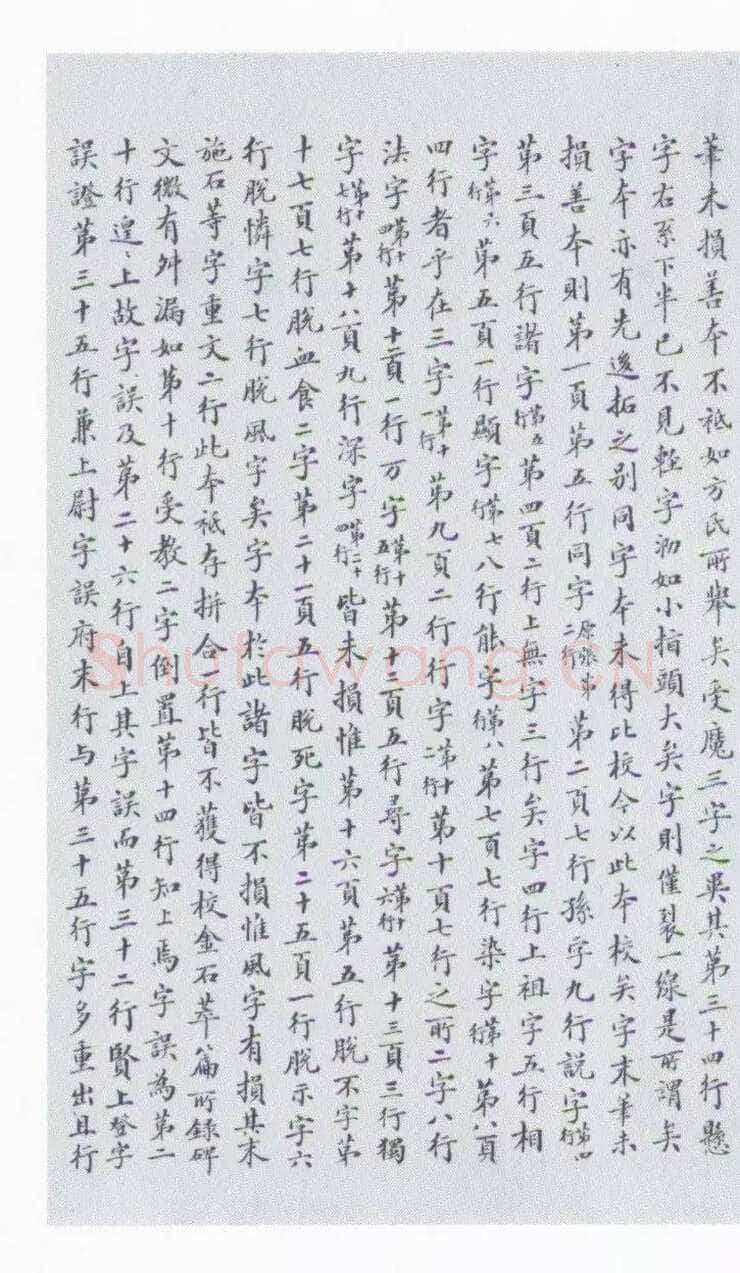 筆未損善本不祗如方氏所舉矣受魔三字之異其第三十四行懸
字右系下半已不見輕字泐如小指頭大矣字則僅裂一線是所謂矣
字本亦有先後拓之别同字本未得比校今以此本校矣字末筆未
損善本則第一頁第五行同字原張弟二行第二頁七行孫字九行説字第四行
第三頁五行諸字第五行第四頁二行上無字三行矣字四行上祖字五行相
字第六行第五頁一行顯字第七行八行能字第八行第七頁七行染字第十行第八頁
四行者乎在三字第十一行第九頁二行行字第十二行第十頁七行之所二字八行
法字第十四行第十二頁一行万字第十五行第十三頁五行尋字第十六行第十三頁三行獨
字第十七行第十八頁九行深字第二十四行皆未損惟第十六頁第五行脱不字第
十七頁七行脱血食二字第二十一頁五行脱死字第二十五頁一行脱示字六
行脱憐字七行脱風字矣字本於此諸字皆不損惟風字有損其末
施石等字重文二行此本祗存拼合一行皆不獲得校金石萃篇所録碑
文微有舛漏如第十行受教二字倒置第十四行知上焉字誤為第二
十行遑〻上故字誤及第二十六行自上其字誤而第三十二行賢上登字
誤證第三十五行兼上尉字誤府末行与第三十五行字多重出且行
Shufawang.CN